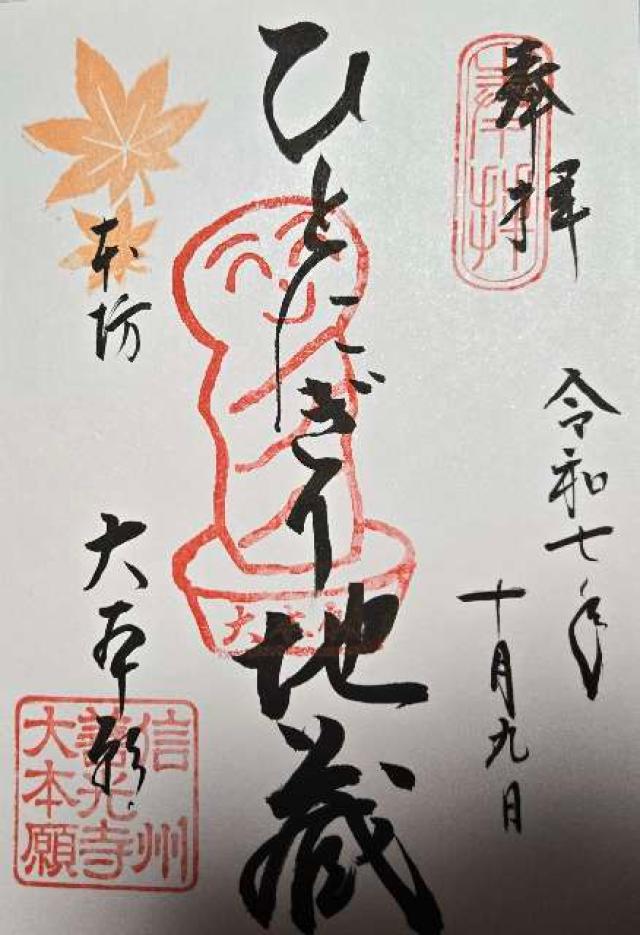 奉拝
奉拝
令和七年
十月九日
ひとにぎり地蔵
大本願
本坊
大本願
信州
善光寺
大本願